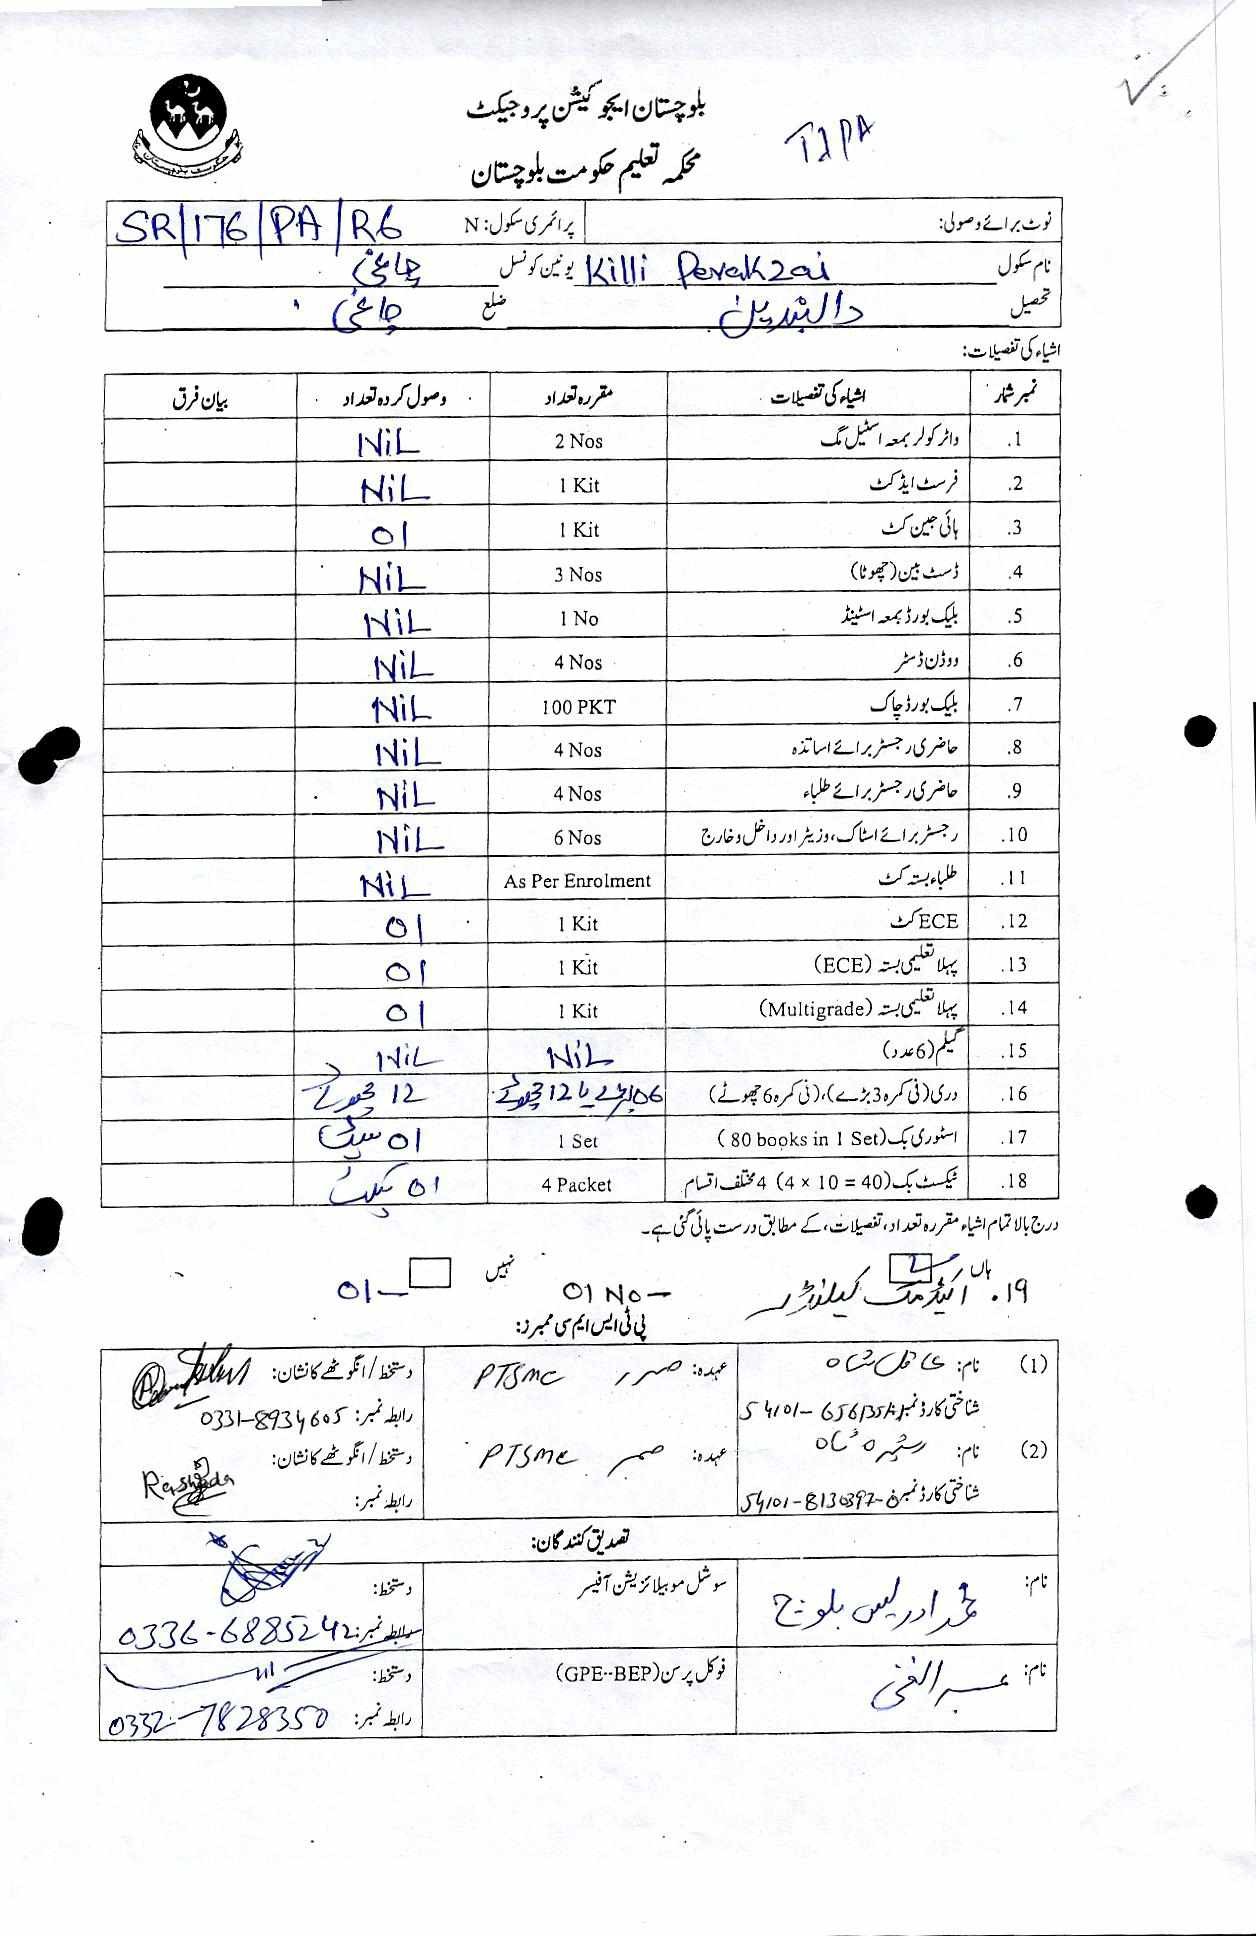 بلوچستان ایجوکیشن پروجیکٹ
TJPA
محکمہ تعلیم حکومت بلوچستان
نوٹ برائے وصولی: پرائمری سکول: N SR/176/PA/R6
نام سکول Killi Perakzai یونین کونسل چاغی
تحصیل دالبندین ضلع چاغی
اشیاء کی تفصیلات:
نمبر شمار اشیاء کی تفصیلات مقررہ تعداد وصول کردہ تعداد بیان فرق
1. واٹر کولر بمعہ اسٹیل مگ 2 Nos NiL
2. فرسٹ ایڈ کٹ 1 Kit NiL
3. ہائی جین کٹ 1 Kit 01
4. ڈسٹ بین (چھوٹا) 3 Nos NiL
5. بلیک بورڈ بمعہ اسٹینڈ 1 No NiL
6. ووڈن ڈسٹر 4 Nos NiL
7. بلیک بورڈ چاک 100 PKT NiL
8. حاضری رجسٹر برائے اساتذہ 4 Nos NiL
9. حاضری رجسٹر برائے طلباء 4 Nos NiL
10. رجسٹر برائے اسٹاک، وزیٹر اور داخل و خارج 6 Nos NiL
11. طلباء بستہ کٹ As Per Enrolment NiL
12. ECE کٹ 1 Kit 01
13. پہلا تعلیمی بستہ (ECE) 1 Kit 01
14. پہلا تعلیمی بستہ (Multigrade) 1 Kit 01
15. گیلم (6 عدد) NiL NiL
16. دری (فی کمرہ 3 بڑے)، (فی کمرہ 6 چھوٹے) 06 بڑے یا 12 چھوٹے 12 چھوٹے
17. اسٹوری بک (80 books in 1 Set) 1 Set 01 سیٹ
18. ٹیکسٹ بک (4 × 10 = 40) 4 مختلف اقسام 4 Packet 01 پیکٹ
درج بالا تمام اشیاء مقررہ تعداد، تفصیلات، کے مطابق درست پائی گئی ہے۔
ہاں نہیں
19. اکیڈمک کیلنڈر 01 No - 01
پی ٹی ایس ایم سی ممبرز:
(1) نام: عاقل شاہ عہدہ: صدر PTSMC دستخط/انگوٹھے کا نشان:
شناختی کارڈ نمبر رابطہ نمبر: 0331-8934605
(2) نام: عہدہ: ممبر PTSMC دستخط/انگوٹھے کا نشان: Rashada
شناختی کارڈ نمبر 54101-8130397-0 رابطہ نمبر:
تصدیق کنندگان:
نام: محمد ادریس بلوچ سوشل موبیلائزیشن آفیسر دستخط:
رابطہ نمبر: 0336-6885242
نام: عبدالغنی فوکل پرسن (GPE--BEP) دستخط:
رابطہ نمبر: 0332-7828350